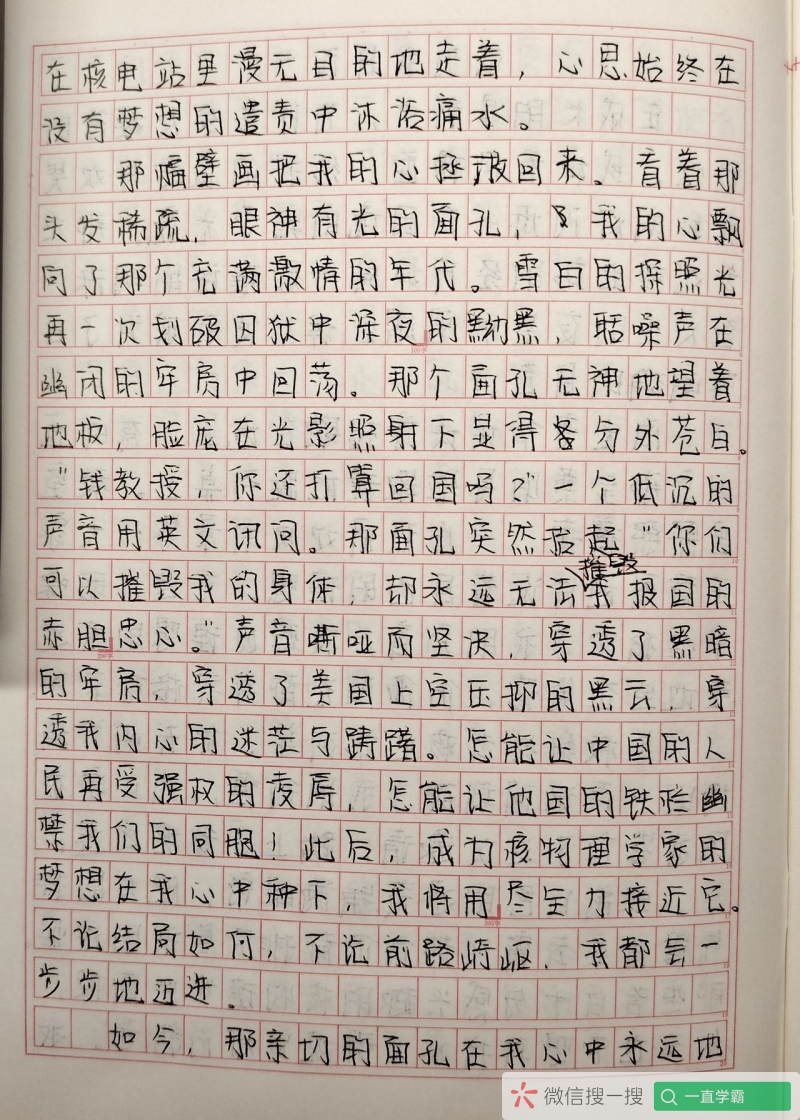 在核电站里漫无目的地走着，心思始终在
没有梦想的谴责中沐浴痛水。
那幅壁画把我的心拯救回来。看着那
头发稀疏，眼神有光的面孔，我的心飘
向了那个充满激情的年代。雪白的探照光
再一次划破囚狱中深夜的黝黑，聒噪声在
幽闭的牢房中回荡。那个面孔无神地望着
地板，脸庞在光影照射下显得分外苍白。
“钱教授，你还打算回国吗？”一个低沉的
声音用英文讯问。那面孔突然抬起“你们
可以摧毁我的身体，却永远无法摧毁我报国的
赤胆忠心。”声音嘶哑而坚决，穿透了黑暗
的牢房，穿透了美国上空压抑的黑云，穿
透我内心的迷茫与踌躇。怎能让中国的人
民再受强权的凌辱，怎能让他国的铁栏幽
禁我们的同胞！此后，成为核物理学家的
梦想在我心中种下，我将用尽全力接近它。
不论结局如何，不论前路崎岖，我都会一
步步地迈进。
如今，那亲切的面孔在我心中永远地
微信搜一搜
一直学霸